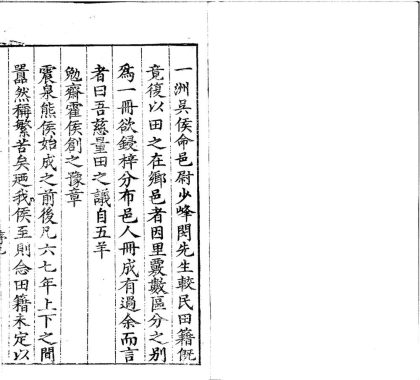 一洲吳侯命邑尉少峰閔先生較民田籍既
竟復以田之在鄉邑者因里覈數區分之別
爲一冊欲鋟梓分布邑人冊成有過余而言
者曰吾慈量田之議自五羊
勉齋霍侯創之豫章
震泉熊侯始成之前後凡六七年上下之間
囂然稱繁苦矣廼我侯至則念田籍未定以